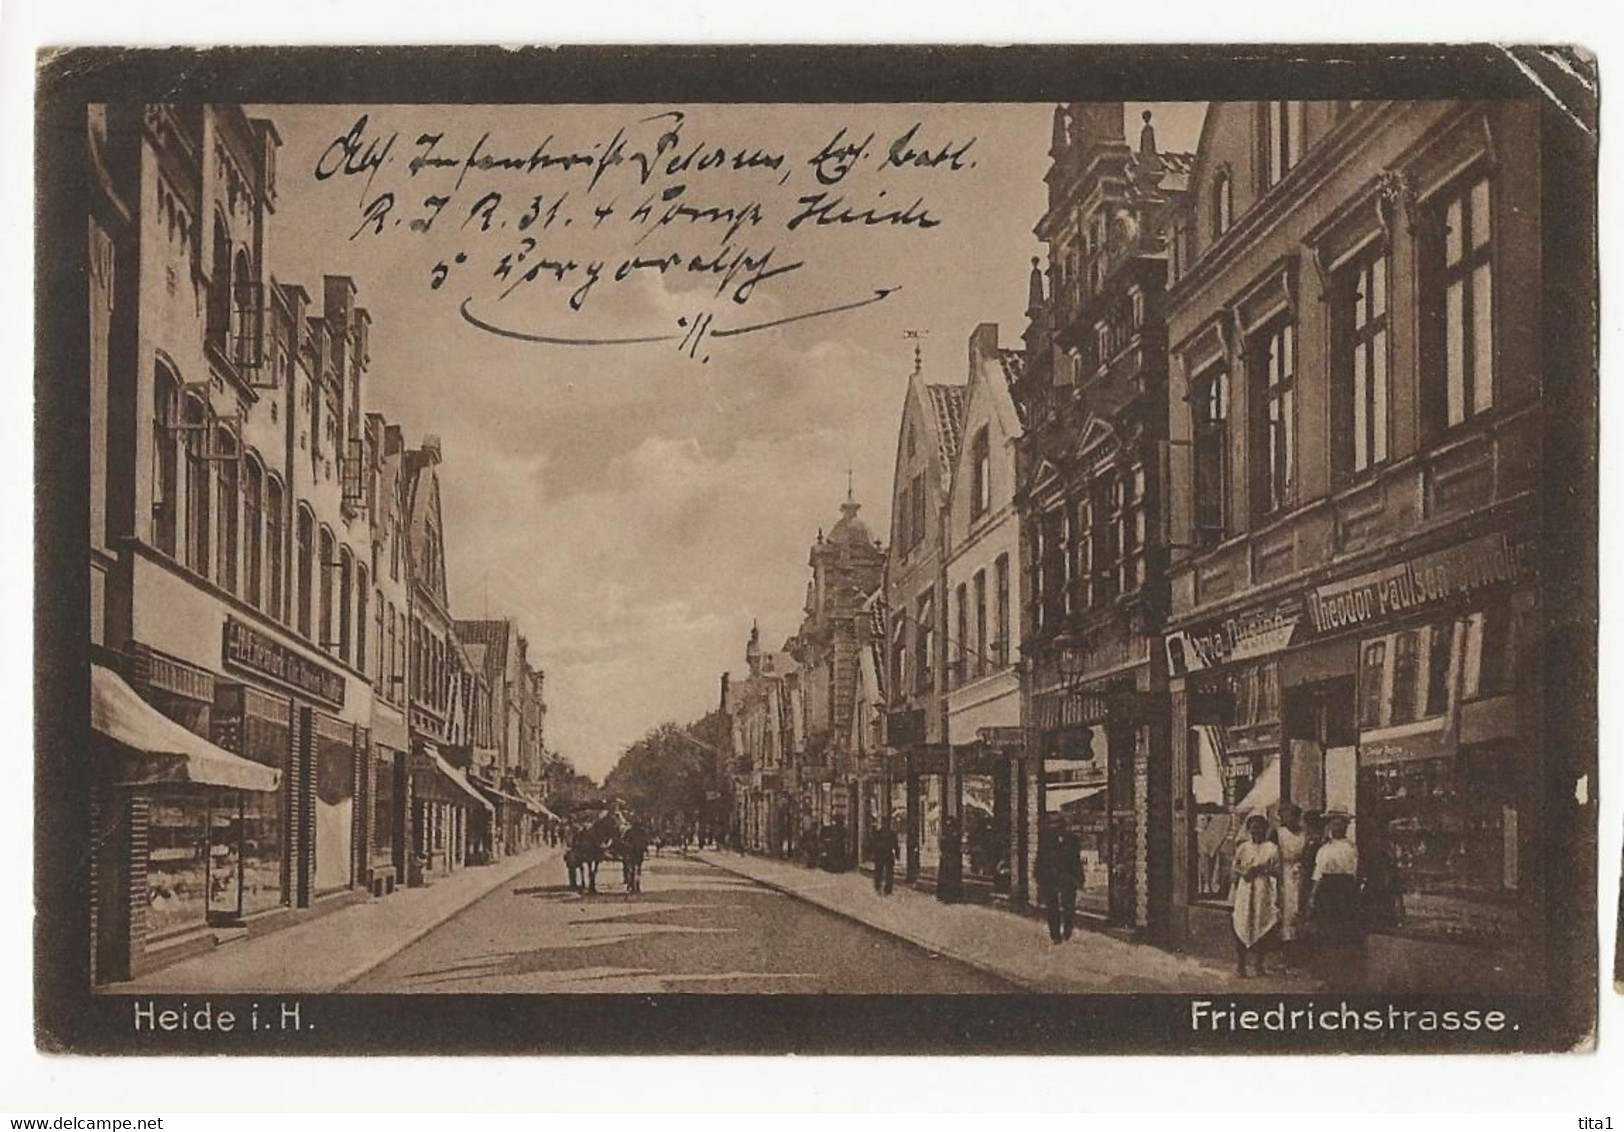 Abs. Infanterist Petersen, Ers. Batl.
R. I R. 31. 4 Komp Heide
5 Korporalsch
Theodor Paulsen
Heide i. H.
Friedrichstrasse.
www.delcampe.net
tita1